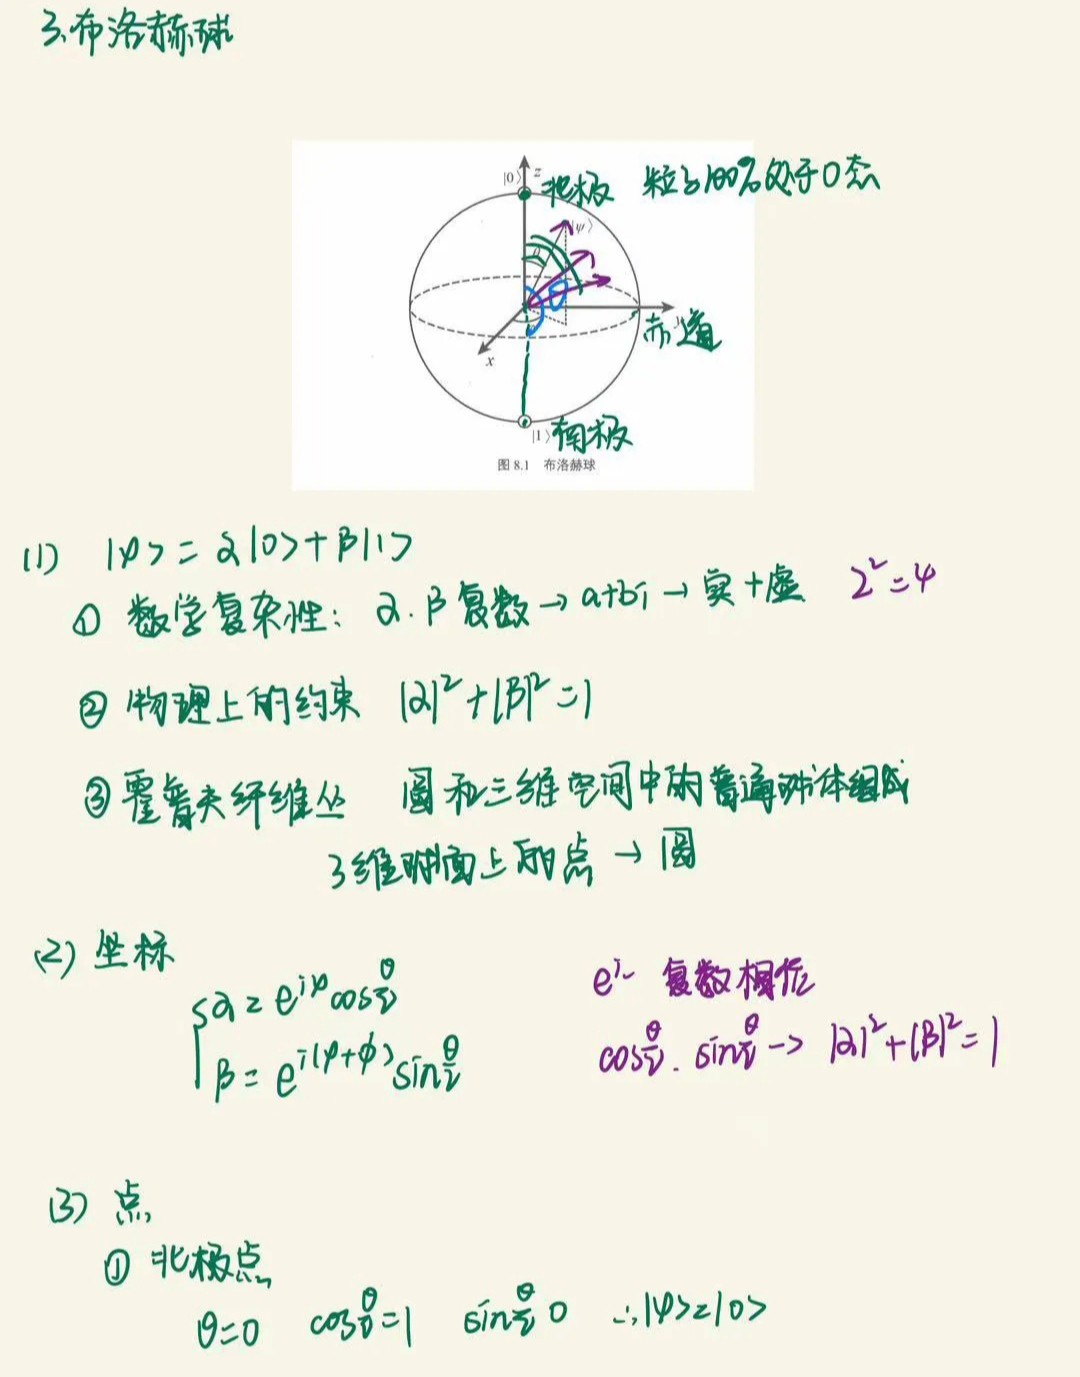 3.布洛赫球
|0⟩ z 北极 粒子100%处于0态
|ψ⟩
θ
赤道
x
|1⟩ 南极
图 8.1 布洛赫球
(1) |ψ> = α|0>+β|1>
① 数学复杂性: α.β复数→a+bi→实+虚 2²=4
② 物理上的约束 |α|²+|β|²=1
③ 霍普夫纤维丛 圆和三维空间中的普通球体组成
3维球面上的点→圆
(2) 坐标
α=e^{iψ}cosθ/2 e^{i~} 复数相位
β=e^{i(ψ+ϕ)}sinθ/2 cosθ/2. sinθ/2 → |α|²+|β|²=1
(3) 点
① 北极点
θ=0 cosθ/2=1 sinθ/2 0 ∴|ψ>=|0>